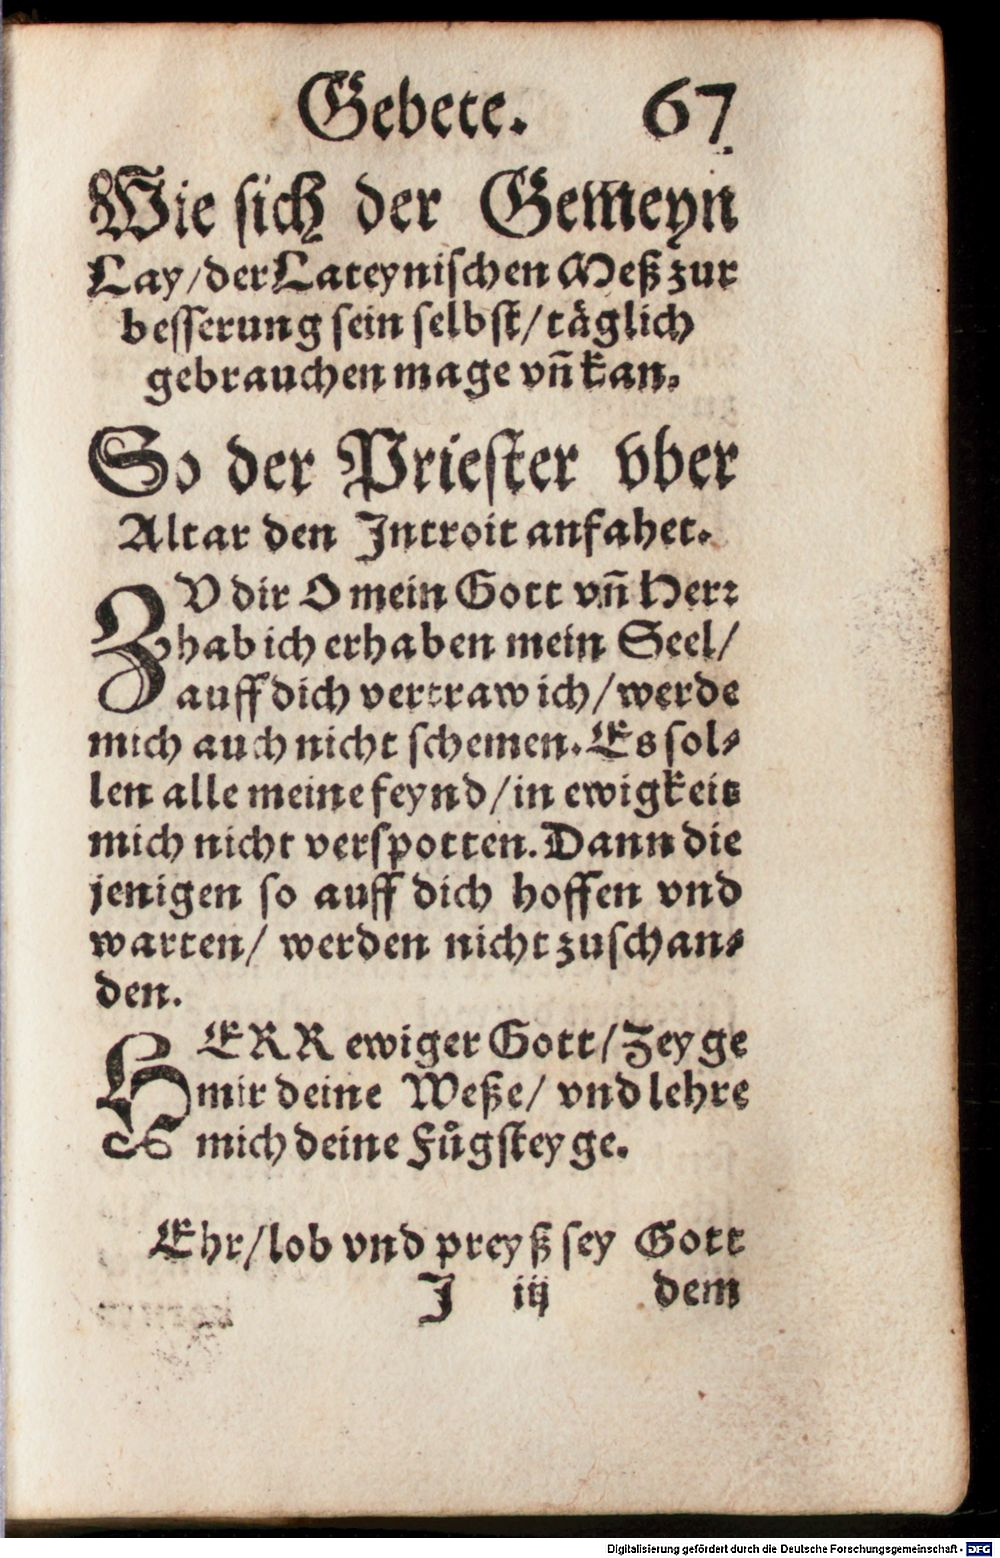 Gebete. 67
Wie sich der Gemeyn
Lay/der Lateynischen Meß zur
besserung sein selbst/täglich
gebrauchen mage vñ kan.
So der Priester vber
Altar den Introit anfahet.
ZV dir O mein Gott vñ Herr
hab ich erhaben mein Seel/
auff dich vertraw ich/werde
mich auch nicht schemen. Es sol⸗
len alle meine feynd/in ewigkeit
mich nicht verspotten. Dann die
jenigen so auff dich hoffen vnd
warten/ werden nicht zuschan⸗
den.
HERR ewiger Gott/Zeyge
mir deine Weße/ vnd lehre
mich deine Fůgsteyge.
Ehr/lob vnd preyß sey Gott
J iij dem
Digitalisierung gefördert durch die Deutsche Forschungsgemeinschaft - DFG